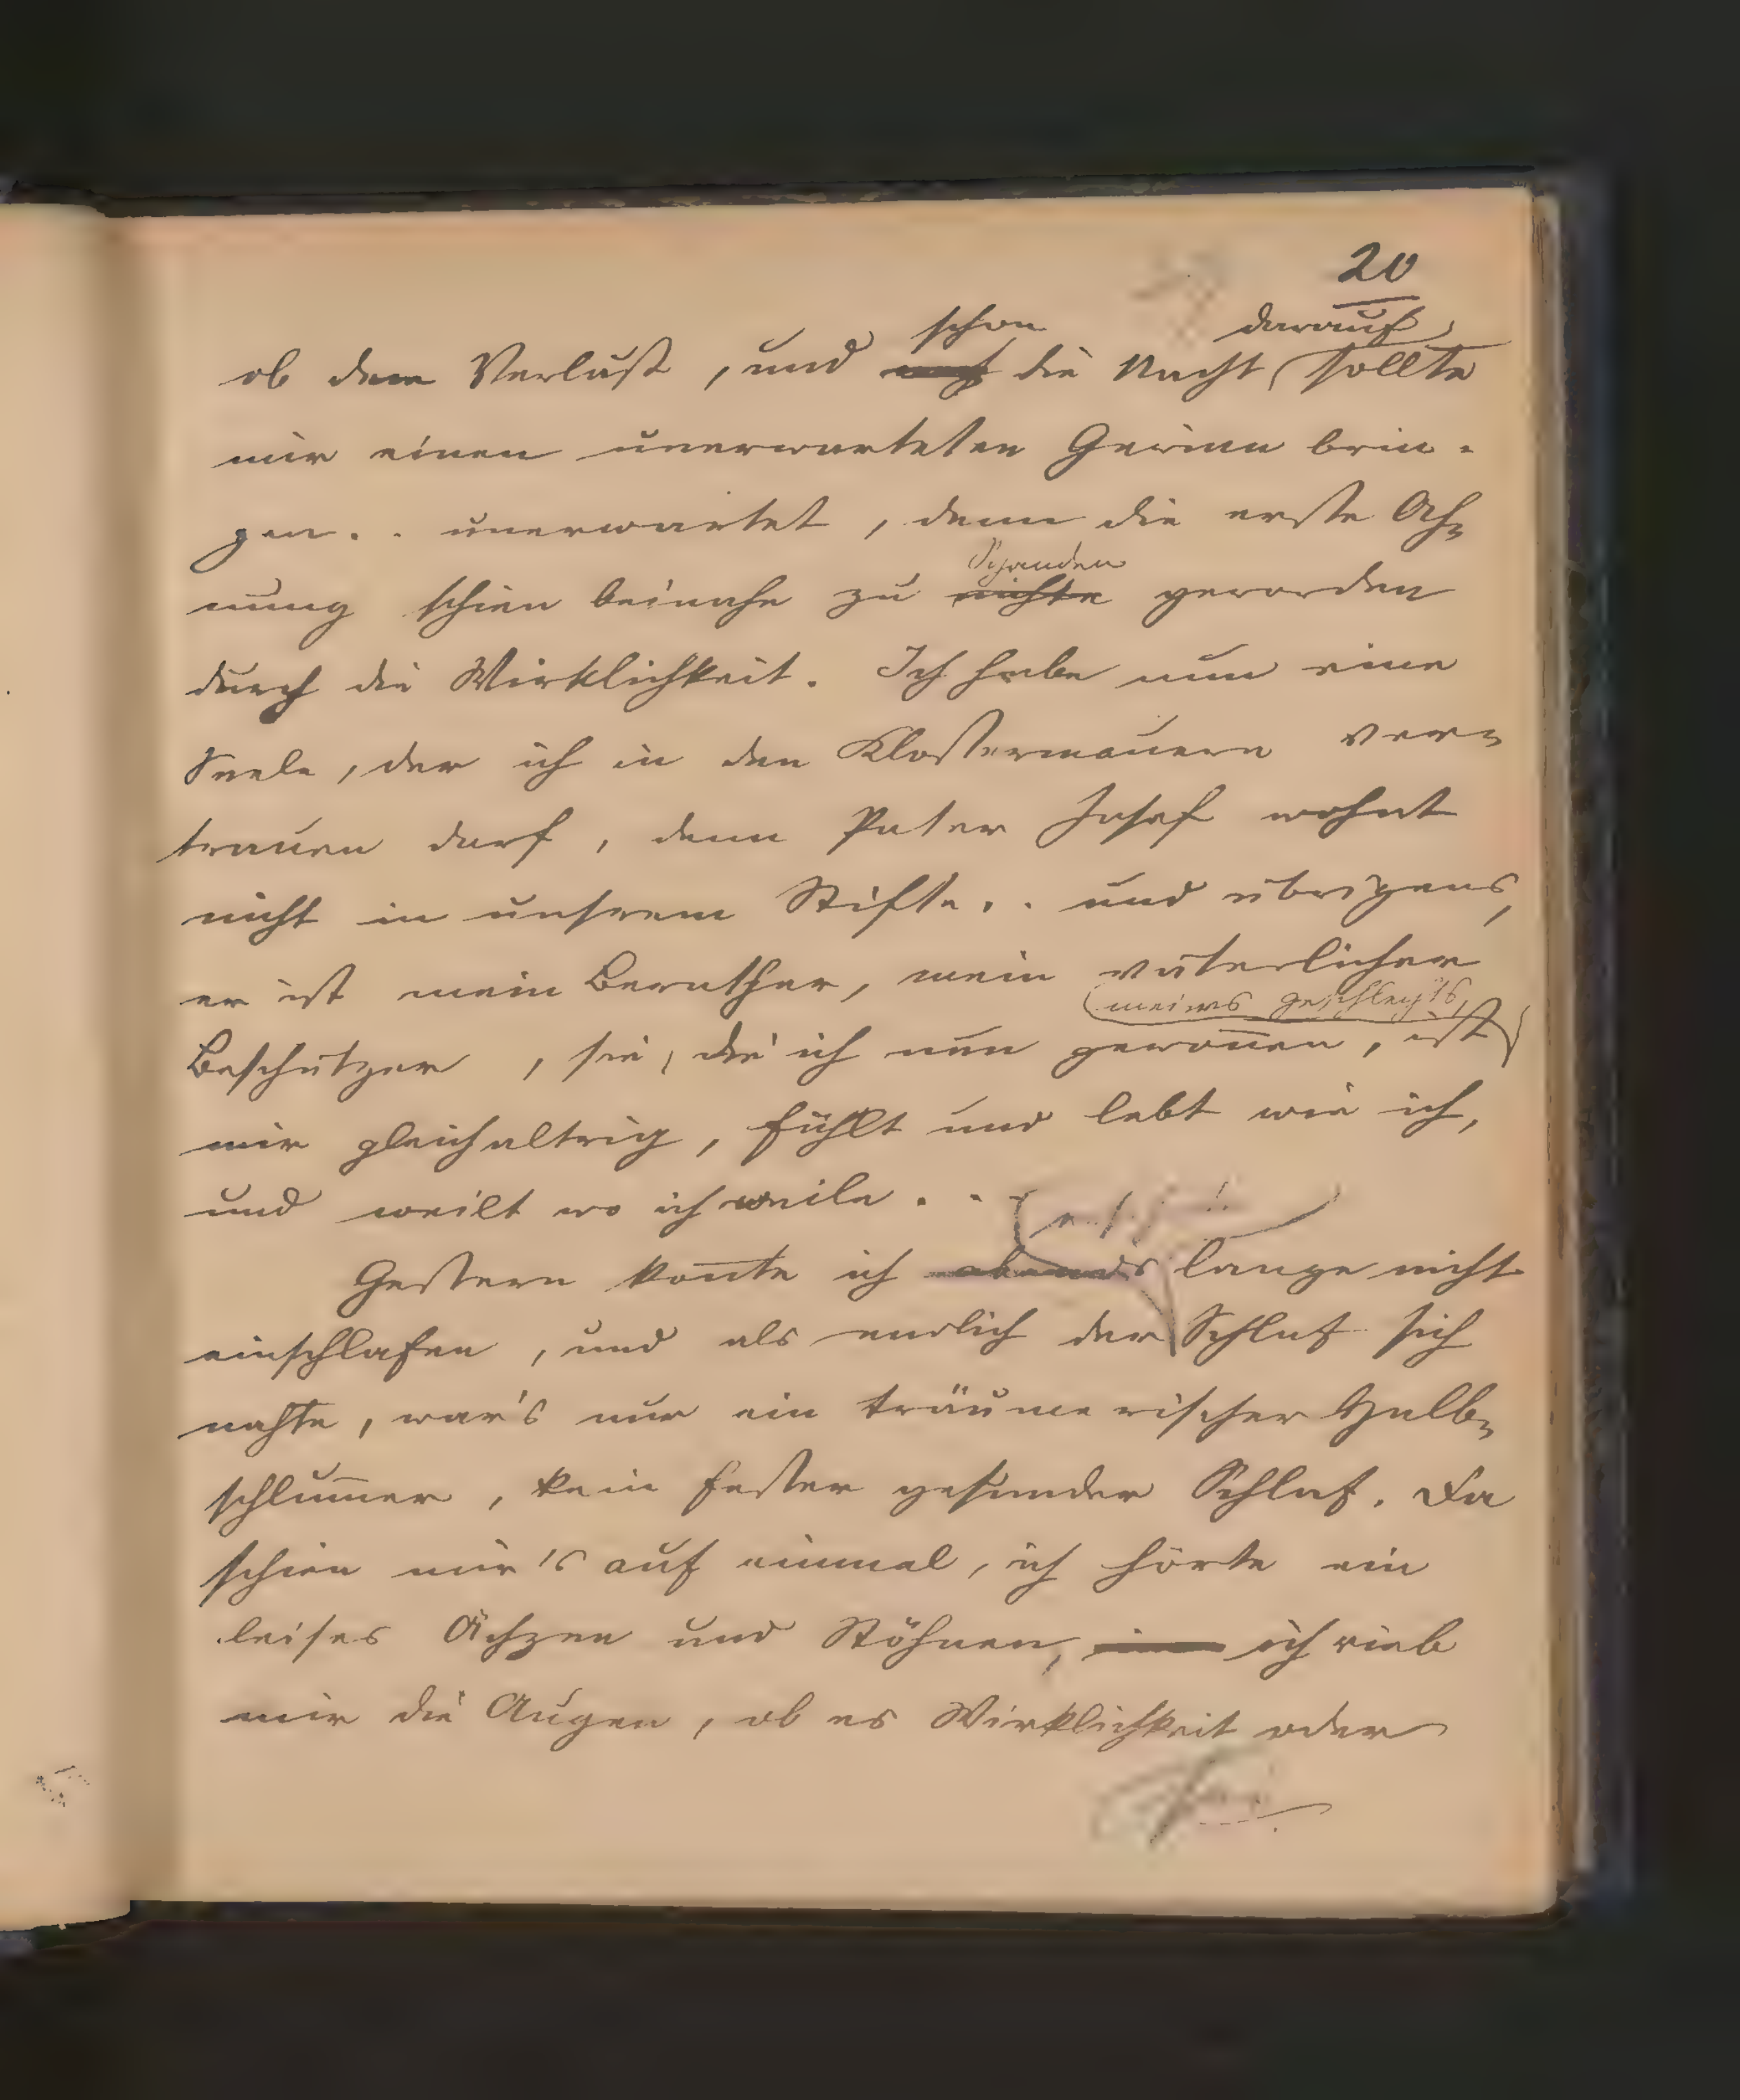 20
schon darauf
ob dem Verlust, und noch die Nacht sollte
mir einen unerwarteten Gewinn brin-
gen.. unerwartet, denn die erste Ah-
Schanden
nung schien beinahe zu nichte geworden
durch die Wirklichkeit. Ich habe nun eine
Seele, der ich in den Klostermauern ver-
trauen darf, denn Pater Josef wohnt
nicht in unserem Stifte.. und übrigens,
er ist mein Berather, mein väterlicher
meines Geschlechts,
Beschützer, sie, die ich nun gewon̅en, ist
mir gleichaltrig, fühlt und lebt wie ich,
und weilt wo ich weile...
Gestern kon̅te ich abends lange nicht
einschlafen, und als endlich der Schlaf sich
nahte, war's nur ein träumerischer Halb-
schlum̅er, kein fester gesunder Schlaf. Da
schien mir's auf einmal, ich hörte ein
leises Ächzen und Stöhnen, ich rieb
mir die Augen, ob es Wirklichkeit oder